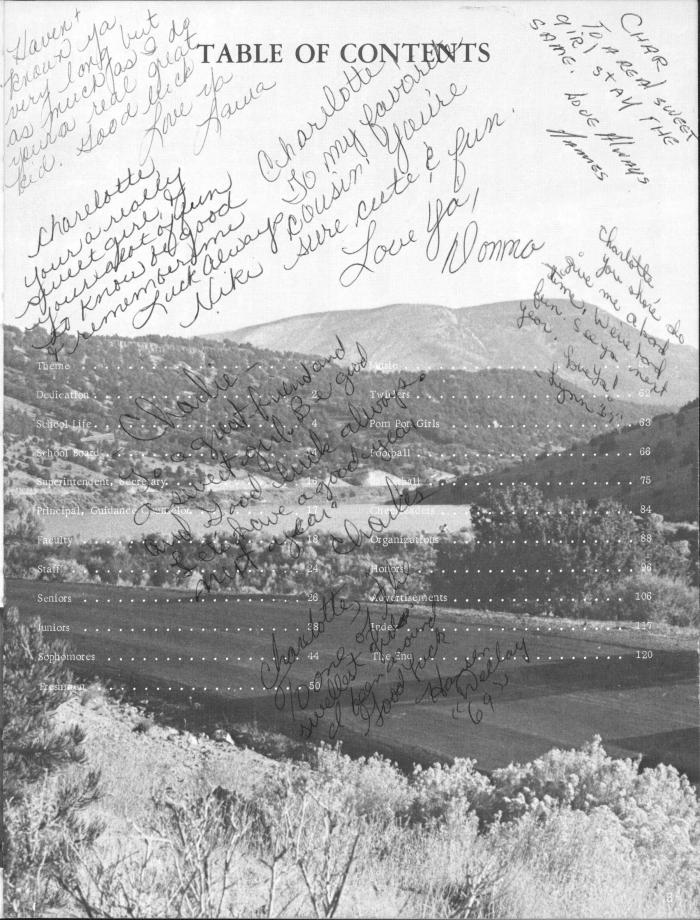 TABLE OF CONTENTS
Haven't
known ya
very long but
as much as I do
your a real great
kid. Good luck
Love ya
Launa
Charlotte
To my favorite
cousin. You're
sure cute & fun.
Love Ya,
Donna
CHAR,
TO A REAL SWEET
GIRL STAY THE
SAME.
LOVE ALWAYS
Charelotte,
Your a really
sweet girl, &
your a lot of fun
to know be good
& remember me
Luck always
Niki
Charlotte
You sure do
give me a bad
time, were had
fun. See ya next
year. Love Ya!
Lynn
Charlie -
To a great friend and
a sweet girl. Be good
and Good luck always.
Lets have a good year
next year.
Charles
Charlotte,
To one of the
swellest girls
I been around
Good luck
"69"
Theme
Dedication 2
School Life 4
School Board
Superintendent, Secretary
Principal, Guidance Counselor 17
Faculty 18
Staff 24
Seniors 26
Juniors 38
Sophomores 44
Freshmen 50
Music
Twirlers 62
Pom Pon Girls 63
Football 66
75
Cheerleaders 84
Organizations 88
Honors 98
Advertisements 106
Index 117
The End 120